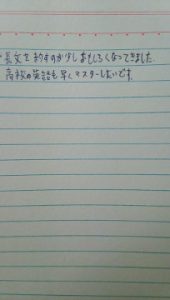 長文を約すのが少しおもしろくなってきました。
高校の英語も早くマスターしたいです。